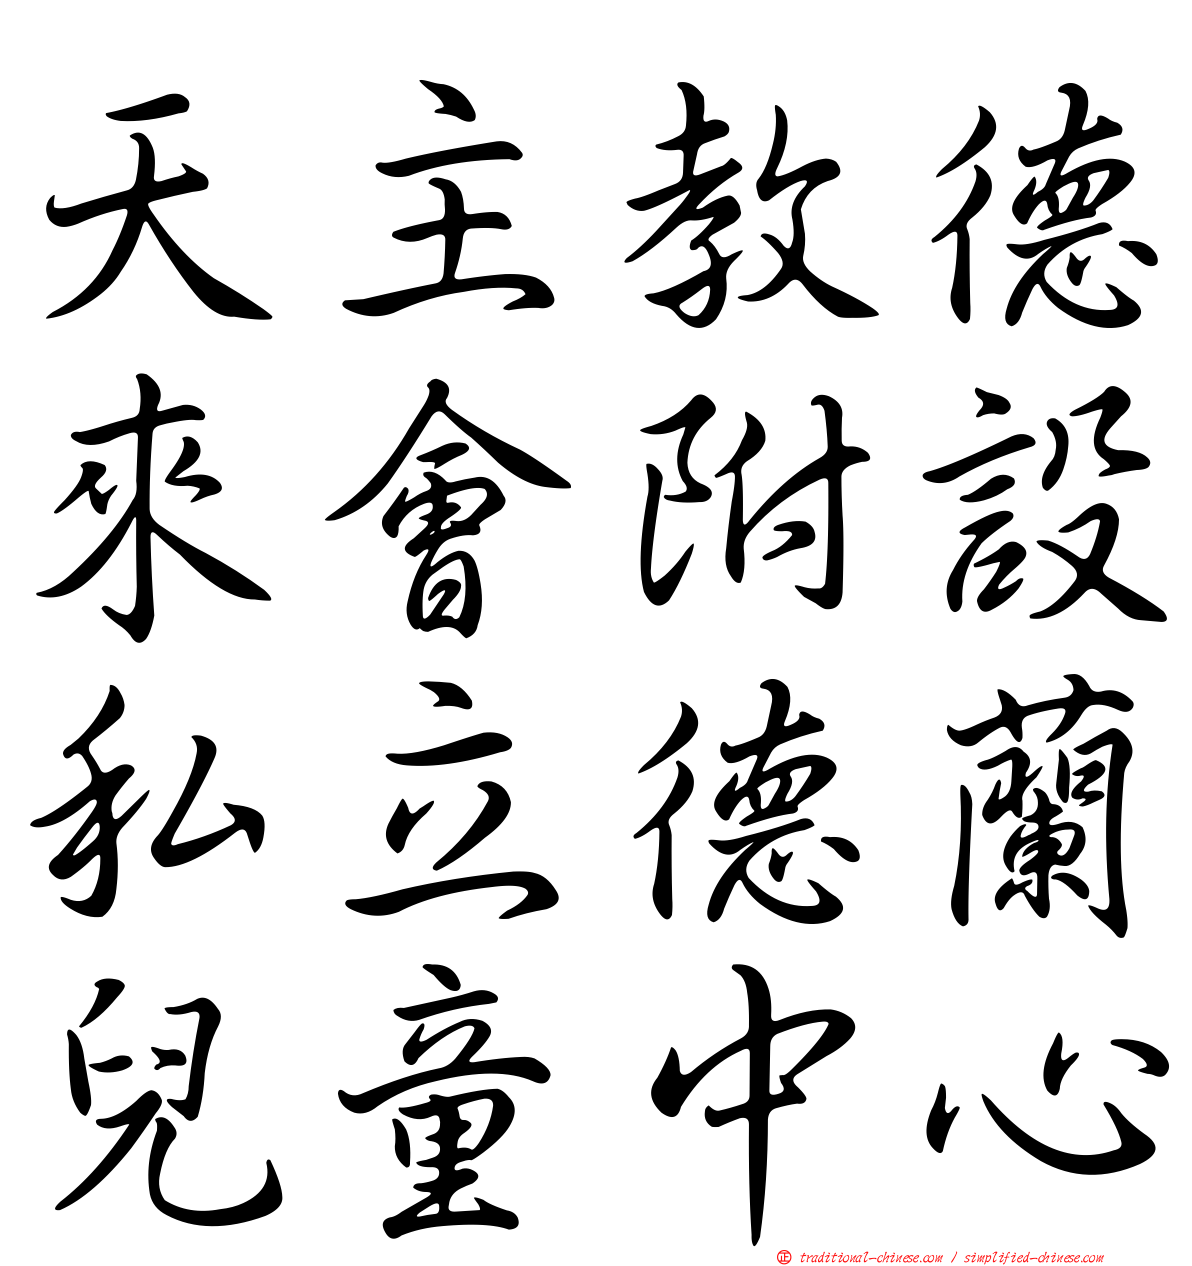 天主教德
來會附設
私立德蘭
兒童中心
正 traditional-chinese.com / simplified-chinese.com